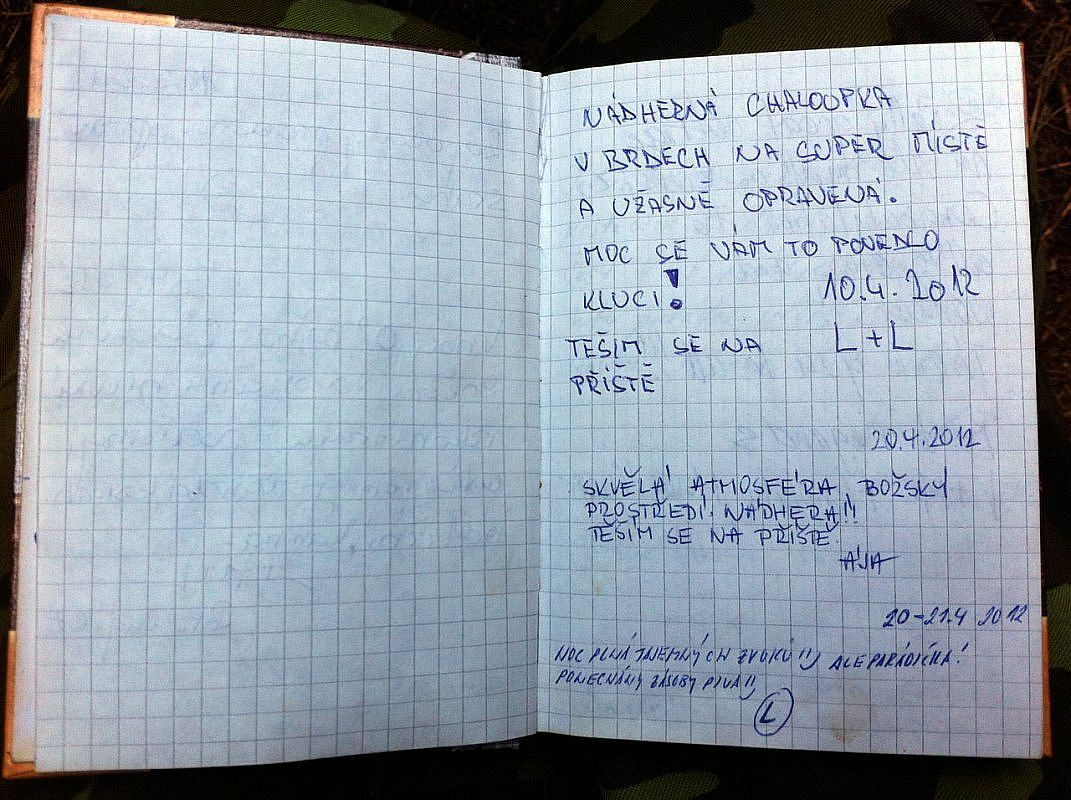 NÁDHERNÁ CHALOOPKA
V BRDECH NA SUPER MÍSTĚ
A UŽASNĚ OPRAVENÁ.
MOC SE VÁM TO POVEDLO
KLUCI! 10.4.2012
TEŠÍM SE NA L+L
PŘÍŠTĚ
20.4.2012
SKVĚLÁ ATMOSFÉRA, BOŽSKÝ
PROSTŘEDÍ. NÁDHERA!!
TĚŠÍM SE NA PŘÍŠTĚ.
ÁJA
20-21.4 2012
NOC PLNÁ TAJEMNÝCH ZVUKŮ!! ALE PARÁDIČKA!
PONECHÁNY ZÁSOBY PIVA!!
L